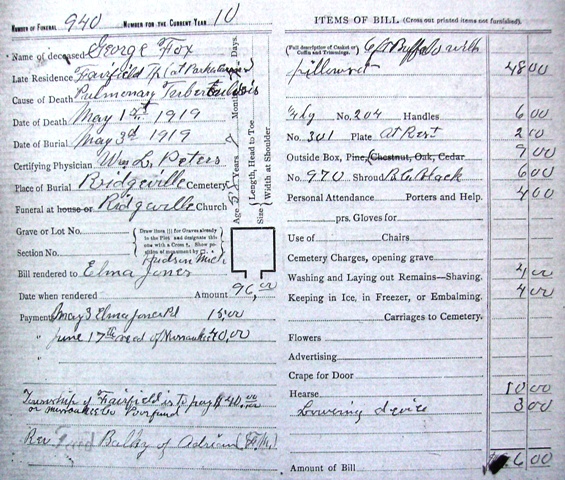 NUMBER OF FUNERAL 940 NUMBER FOR THE CURRENT YEAR 10
Name of deceased George Fox
Late Residence Fairfield Tp (at Parkers
Cause of Death Pulmonary Tuberculosis
Date of Death May 1st 1919
Date of Burial May 3d 1919
Certifying Physician Wm L. Peters
Place of Burial Ridgeville Cemetery
Funeral at house or Ridgville Church
Age Years, Months, Days.
Size { Length, Head to Toe
Width at Shoulder
Grave or Lot No.
Section No.
Draw lines ||| for Graves already in the Plot and designate this one with a Cross †. Show position of monument by □.
Hudson Mich
Bill rendered to Elma Jones
Date when rendered Amount 96,00
Payment May 3 Elma Jones Pd 15,00
" June 17th recd of 40,00
"
Township of Fairfield is to pay $40.00
or Poor fund
Rev Bailey of Adrian (F.M.)
ITEMS OF BILL, (Cross out printed items not furnished).
(Full description of Casket or Coffin and Trimmings. Buffalo with
pillow 48 00
No. 204 Handles 6 00
No. 301 Plate At Rest 2 00
Outside Box, Pine, Chestnut, Oak, Cedar 9 00
No. 970 Shroud B.C. Black 6 00
Personal Attendance Porters and Help. 4 00
prs. Gloves for
Use of Chairs
Cemetery Charges, opening grave
Washing and Laying out Remains—Shaving. 4 00
Keeping in Ice, in Freezer, or Embalming. 4 00
Carriages to Cemetery.
Flowers
Advertising
Crape for Door
Hearse 10 00
Lowering device 3 00
Amount of Bill 6 00